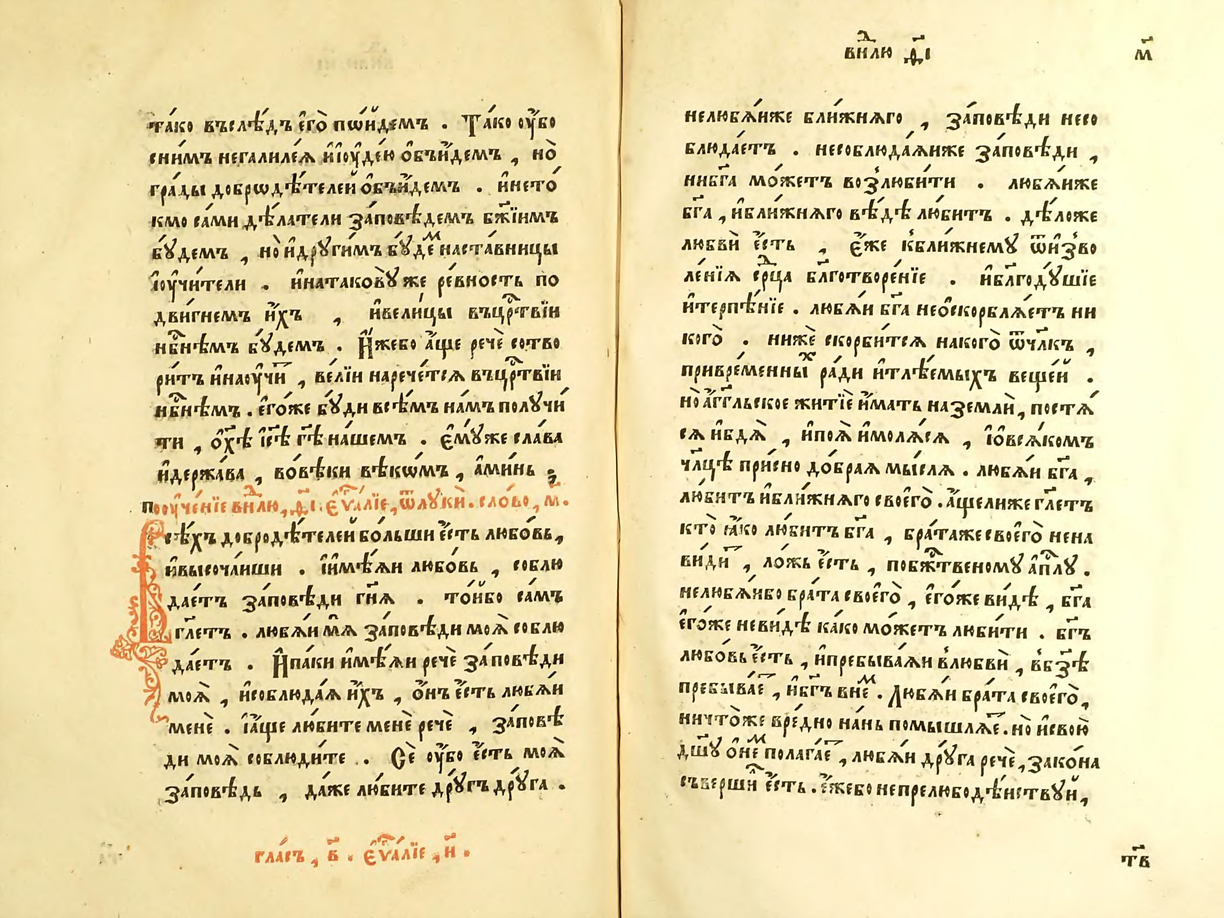 та́ко въслѣ́дъ є҆го̀ пѡи́демъ . Та́ко ᲂу҆́бо
сни́мъ негалиле́ѧ и҆іꙋде́ю ѻ҆бъи́демъ , но̀
гра́ды добрѡдѣ́телей ѻ҆бъи́демъ . и҆нето́
кмо са́ми дѣ́латели за́повѣдемъ бж҃їимъ
бꙋ́демъ , но̀ и҆дрꙋги́мъ бꙋ́деⷨ наста́вницы
и҆ᲂу҆чи́тели . и҆натакову́же ре́вность по
дви́гнемъ и҆́хъ , и҆вели́цы въцрⷭ҇твїи
нбⷭ҇нѣмъ бꙋ́демъ . И҆́жебо а҆́ще речѐ сотво
ри́тъ и҆наᲂу҆чи́ⷮ , ве́лїи нарече́тсѧ въцрⷭ҇твїи
нбⷭ҇нѣмъ . є҆го́же бꙋ́ди всѣ́мъ на́мъ полꙋчи́
ти , ѻ҆хⷭ҇ѣ і҆с҃ѣ гдⷭ҇ѣ на́шемъ . є҆мꙋ́же сла́ва
и҆держа́ва , вовѣ́ки вѣкѡ́мъ , а҆ми́нь ;
Поᲂу҆че́нїе внⷣлю , д҃і . є҆ѵⷢ҇алїе , ѿлꙋки́ . сло́во , м҃ .
Всѣ́хъ добродѣ́телей бо́льши є҆́сть любо́вь ,
и҆высоча́иши . и҆и҆мѣ́ѧи любо́вь , соблю
да́етъ за́повѣди гнⷭ҇ѧ . то́ибо са́мъ
гл҃етъ . любѧ́и мѧ̀ за́повѣди моѧ̀ соблю
да́етъ . И҆па́ки и҆мѣ́ѧи речѐ за́повѣди
моѧ̀ , и҆соблюда́ѧ и҆́хъ , ѻ҆́нъ є҆́сть любѧ́и
менѐ . и҆а҆́ще лю́бите менѐ речѐ , за́повѣ
ди моѧ̀ соблюди́те . Сѐ ᲂу҆́бо є҆́сть моѧ̀
за́повѣдь , да́же лю́бите дрꙋ́гъ дрꙋ́га .
гла́съ , в҃ . є҆ѵⷢ҇алїе , н҃ .
внⷣлю д҃і
м҃
нелюбѧ́иже бли́жнѧго , за́повѣди несо
блюда́етъ . несоблюда́ѧиже за́повѣди ,
нибг҃а мо́жетъ возлюби́ти . любѧ́иже
бг҃а , и҆бли́жнѧго вѣ́дѣ лю́битъ . дѣ́ложе
любвѝ є҆́сть , є҆́же кбли́жнемꙋ ѿи҆зво
ле́нїѧ срⷣца блг҃отворе́нїе . и҆блг҃одꙋ́шїе
и҆терпѣ́нїе . любѧ́и бг҃а неѻ҆скорблѧ́етъ ни
кого̀ . нижѐ скорби́тсѧ накого̀ ѿчл҃къ ,
привре́менныⷯ ра́ди и҆тлѣ́емыхъ веще́й .
но̀ а҆́гг҃льское житїѐ и҆́мать наземлѝ , постѧ́
сѧ и҆бдѧ̀ , и҆поѧ̀ и҆молѧ́сѧ , і҆ѻ҆всѧ́комъ
чл҃цѣ при́сно до́браѧ мы́слѧ . любѧ́и бг҃а ,
лю́битъ и҆бли́жнѧго своего̀ . а҆́щелиже гл҃етъ
кто̀ ꙗ҆́ко лю́битъ бг҃а , бра́таже своего̀ нена
ви́диⷮ , ло́жь є҆́сть , побжⷭ҇твеномꙋ а҆пⷭ҇лꙋ .
нелюбѧ́ибо бра́та своего̀ , є҆го́же ви́дѣ , бг҃а
є҆го́же неви́дѣ ка́ко мо́жетъ люби́ти . бг҃ъ
любо́вь є҆́сть , и҆пребыва́ѧи влюбвѝ , вбз҃ѣ
пребыва́еⷮ , и҆бг҃ъ внеⷨ . Любѧ́и бра́та своего̀ ,
ничто́же вре́дно на́нь помышлѧ́еⷮ . но̀ и҆свою̀
дш҃ꙋ ѻ҆неⷨ полага́еⷮ , любѧ́и дрꙋ́га речѐ , зако́на
съверши́ⷧ є҆́сть . є҆́жебо непрелюбодѣ́иствꙋй ,
тв҃